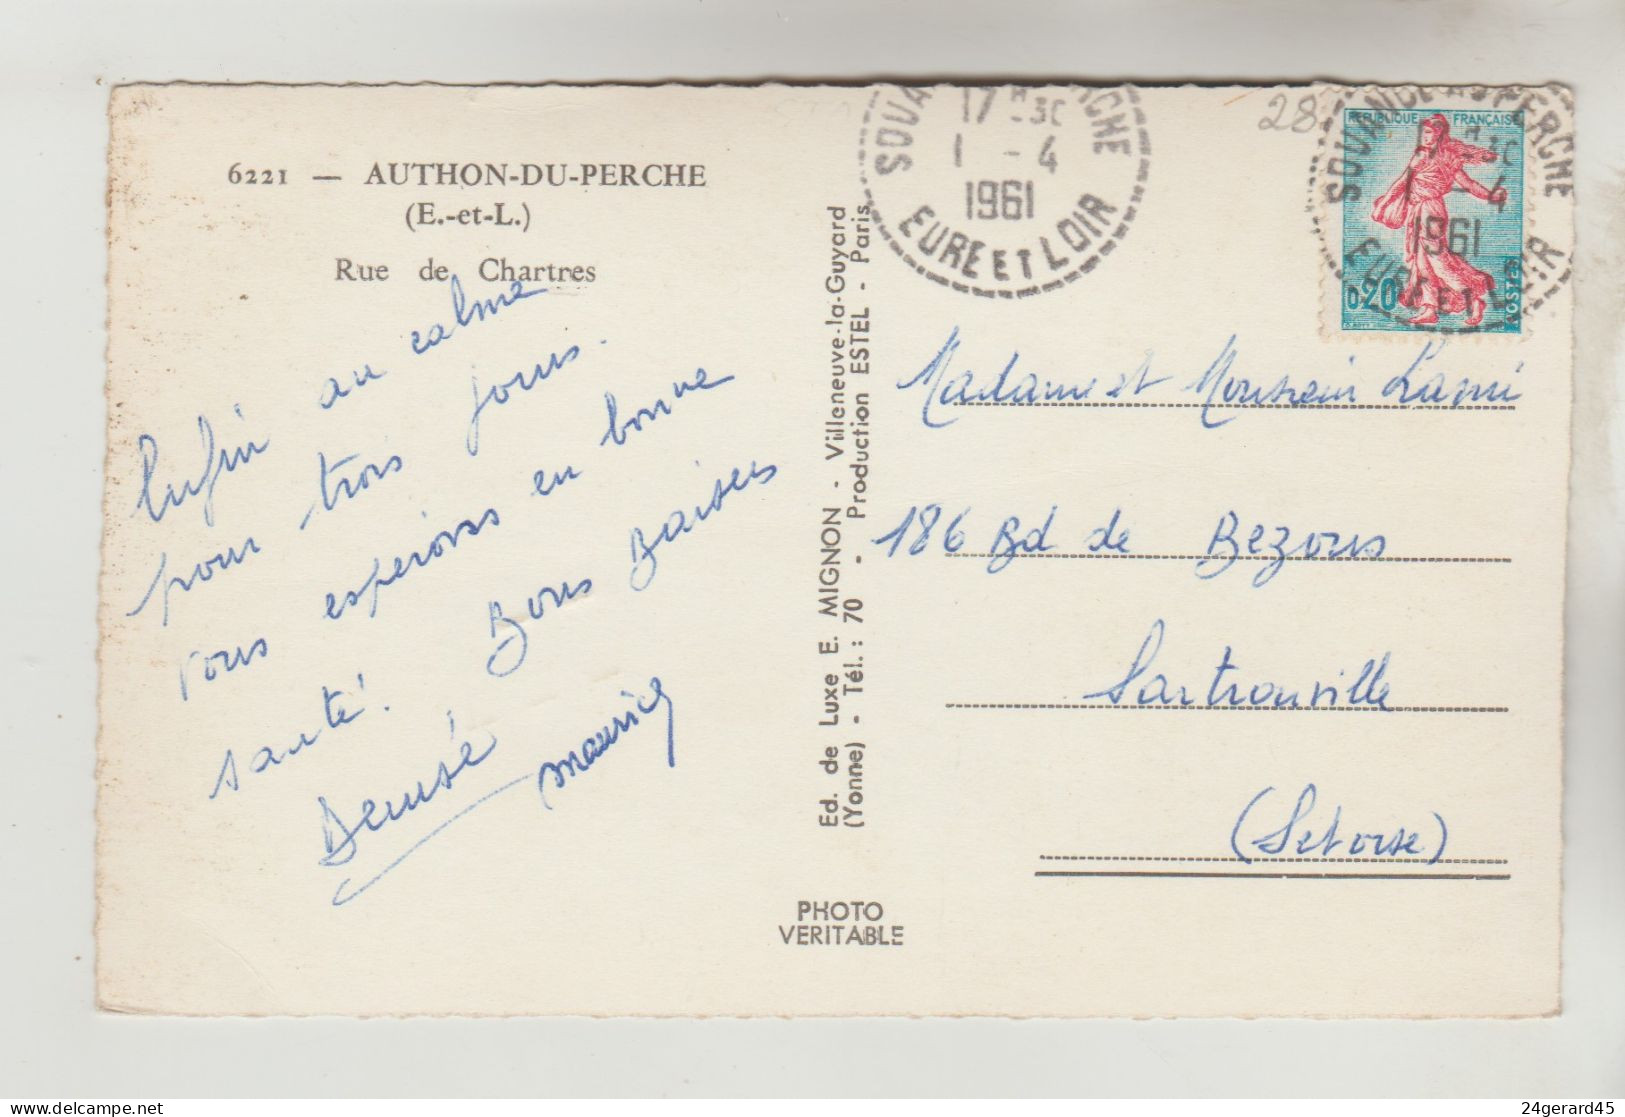 6221 — AUTHON-DU-PERCHE
(E.-et-L.)
Rue de Chartres
Enfin au calme
pour trois jours.
vous esperons en bonne
santé! Bons Baisers
Denise
maurice
Ed. de Luxe E. MIGNON - Villeneuve-la-Guyard
(Yonne) - Tél. : 70 - Production ESTEL - Paris
PHOTO
VERITABLE
17 H 30
1 - 4
1961
EURE ET LOIR
28
REPUBLIQUE FRANÇAISE
0,20
POSTES
SOUANCE AU PERCHE
17 H 30
1 - 4
1961
EURE ET LOIR
Madame et Monsieur Lami
186 Bd de Bezons
Sartrouville
(Set oise)
24gerard45